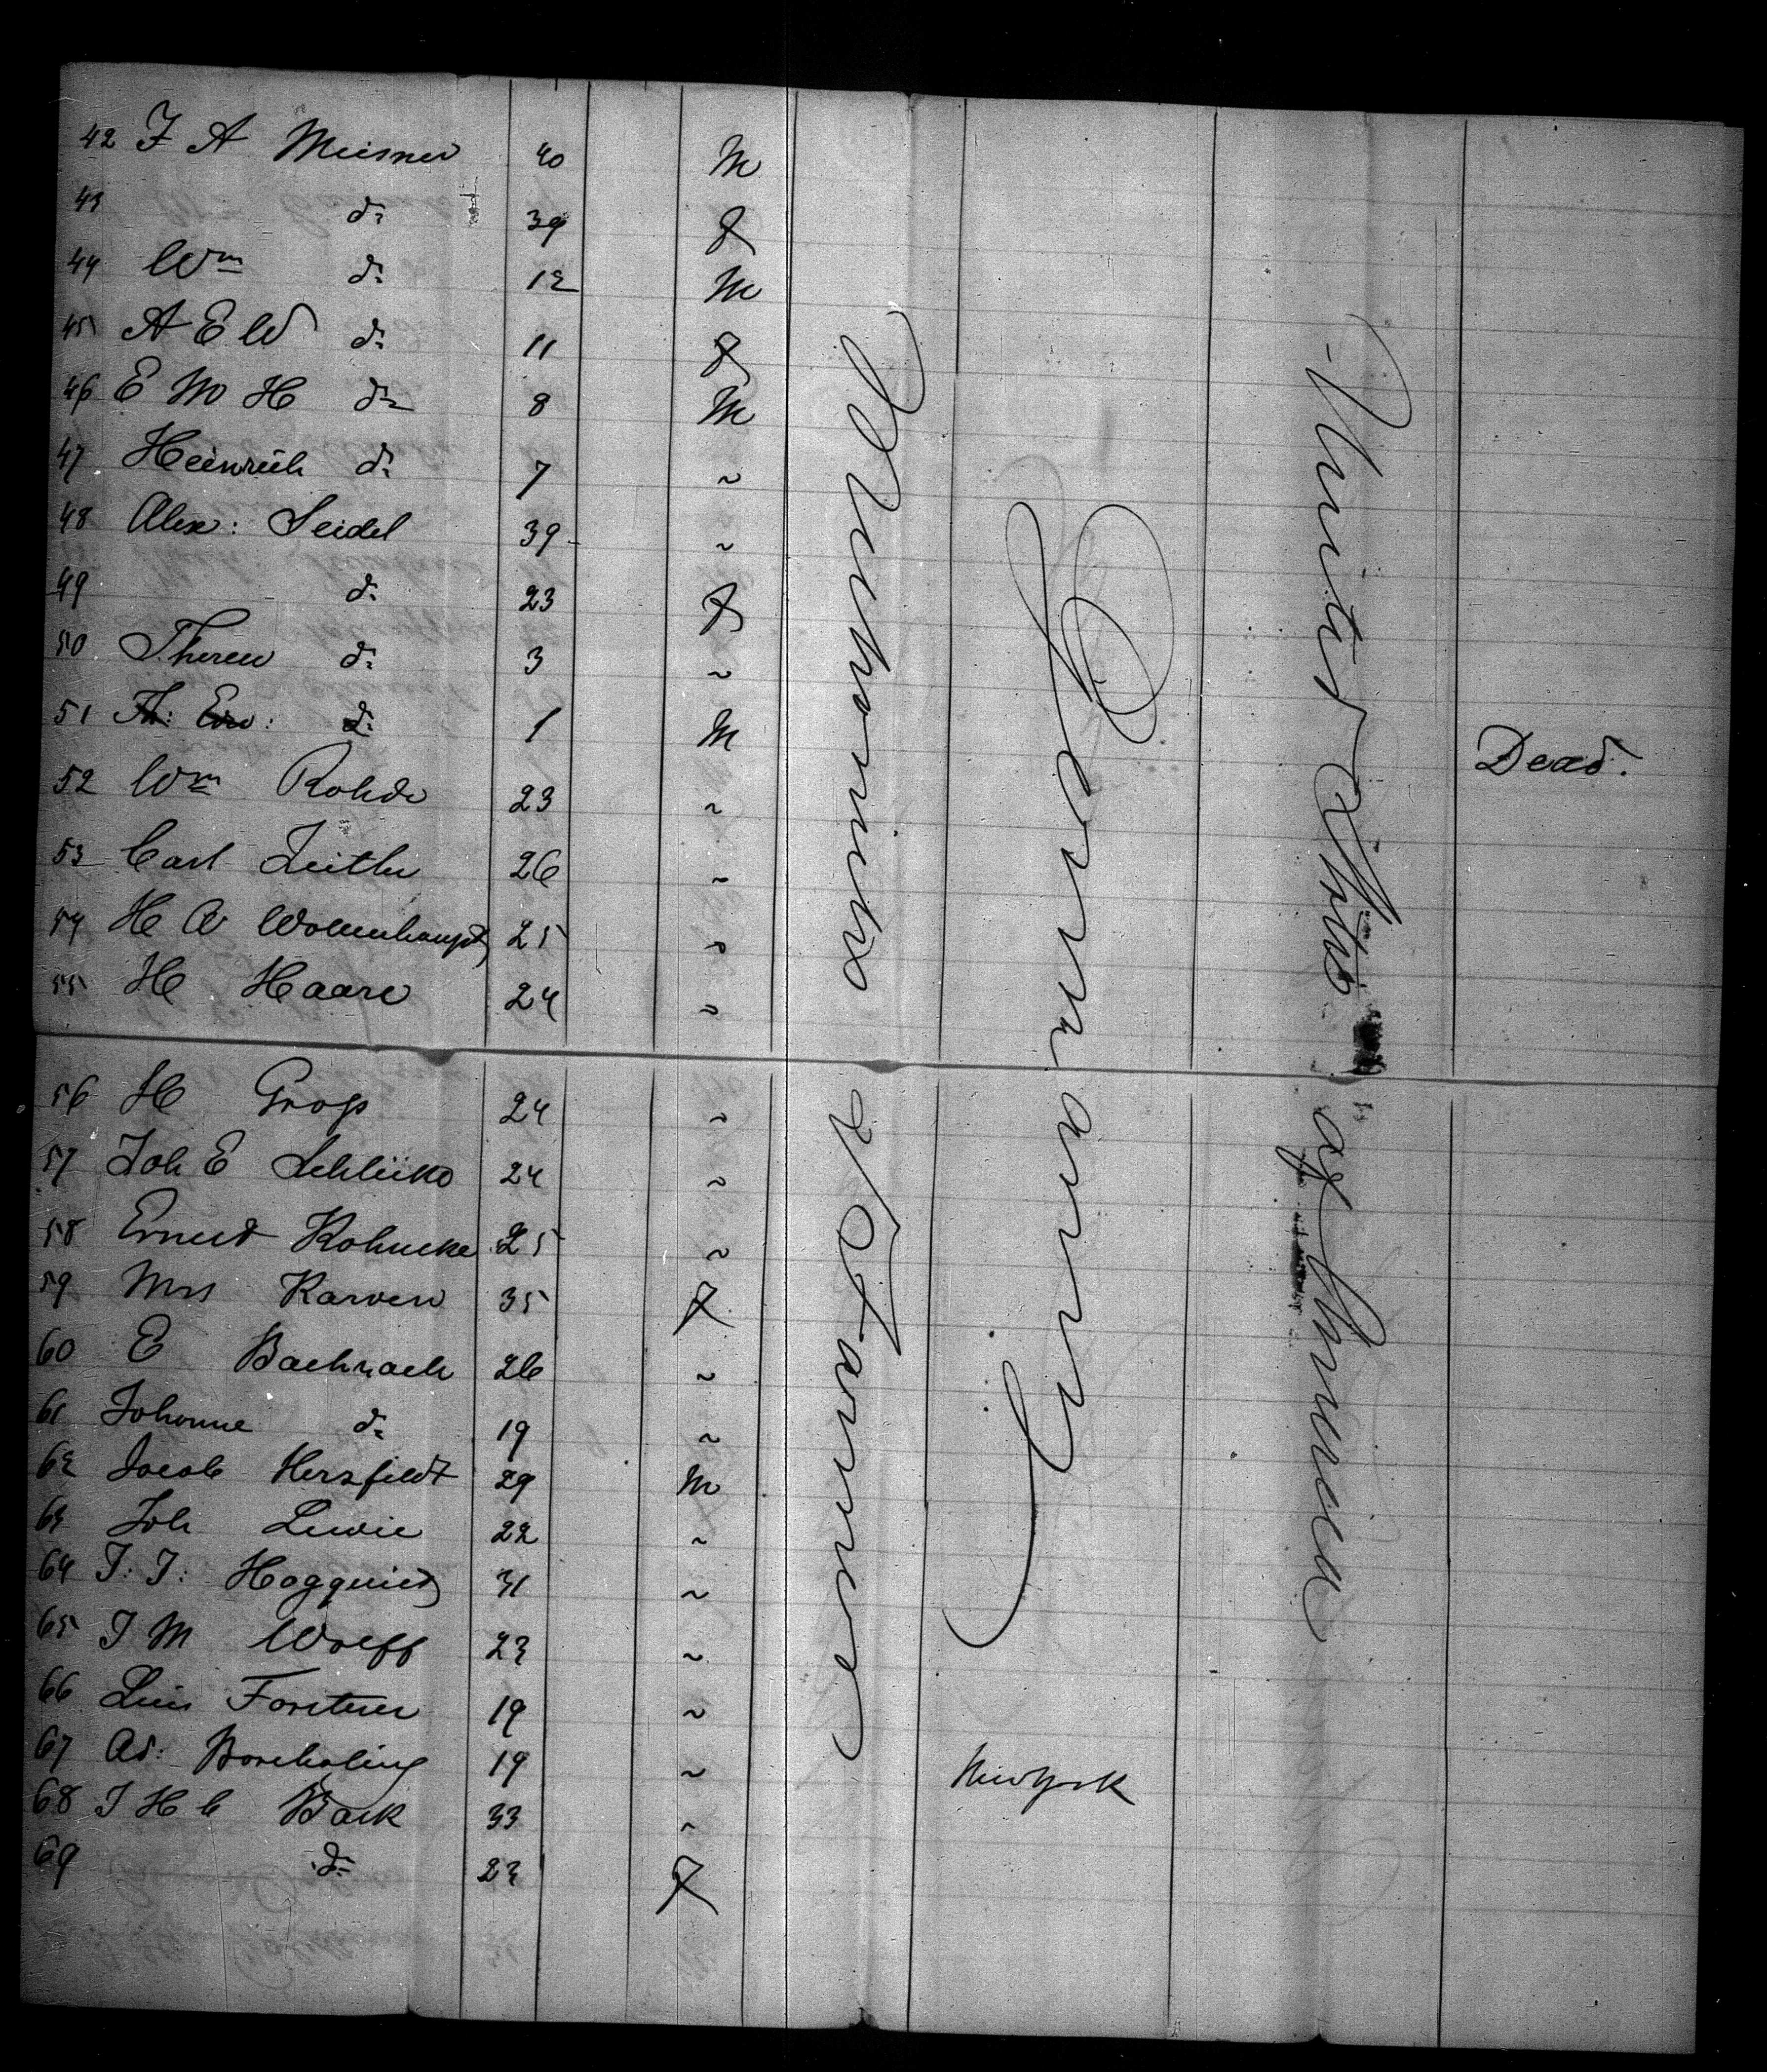 42 F A Meisner 40 M
43 do 39 F
44 Wm do 12 M
45 A E W do 11 F
46 E M H do 8 M
47 Heinrich do 7 "
48 Alex: Seidel 39 "
49 do 23 F
50 Therese do 3 "
51 Th: Edw: do 1 M Dead.
52 Wm Rohde 23 "
53 Carl 26 "
54 H W Wollenhaupt 25 "
55 H Haare 24 "
56 H Gross 24 "
57 Joh E 24 "
58 Ernest Kohncke 25 "
59 Mrs Karven 35 F
60 E Bachrach 26 "
61 Johanne do 19 "
62 Jacob Herzfeldt 29 M
63 Joh Lewie 22 "
64 J: J: Hogquist 31 "
65 J M Wolff 23 "
66 Forstner 19 "
67 Ad: 19 "
68 J H C Back 33 " New York
69 do 23 F
Germany
United States of America